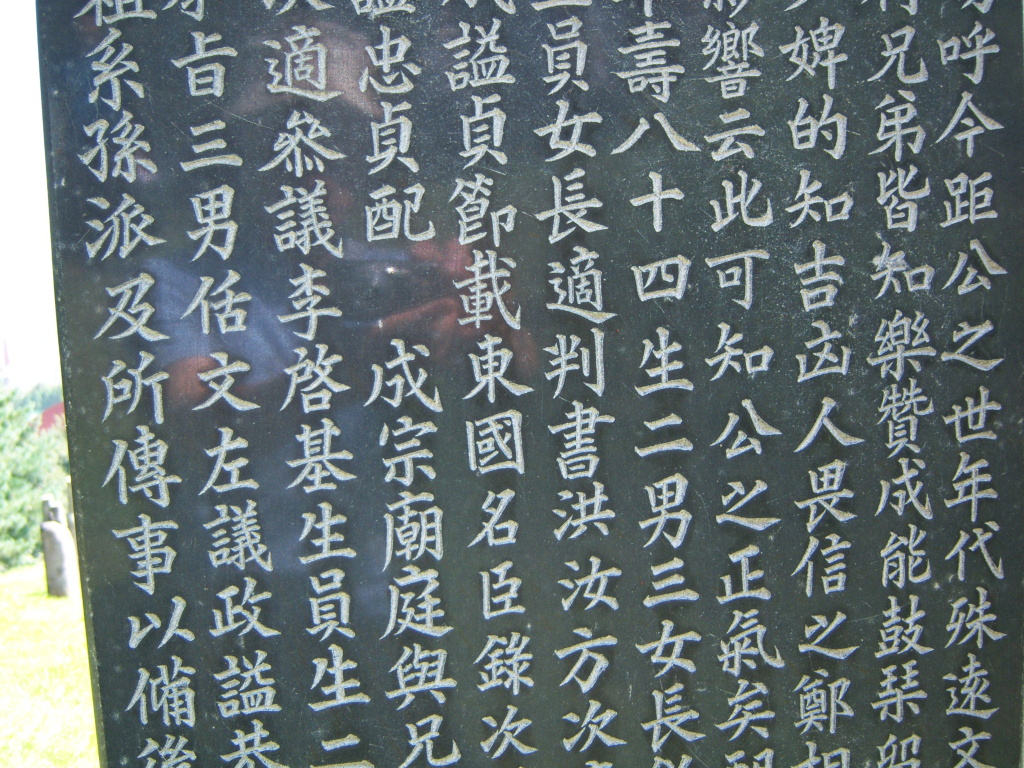 呼今距公之世年代殊遠文
兄弟皆知樂贊成能鼓琴
婢的知吉凶人畏信之鄭相
響云此可知公之正氣矣
壽八十四生二男三女長
員女長適判書洪汝方次
謚貞節載東國名臣錄次
謚忠貞配成宗廟庭與兄
適參議李啓基生員生二
旨三男佸文左議政謚恭
祖系孫派及所傳事以備後